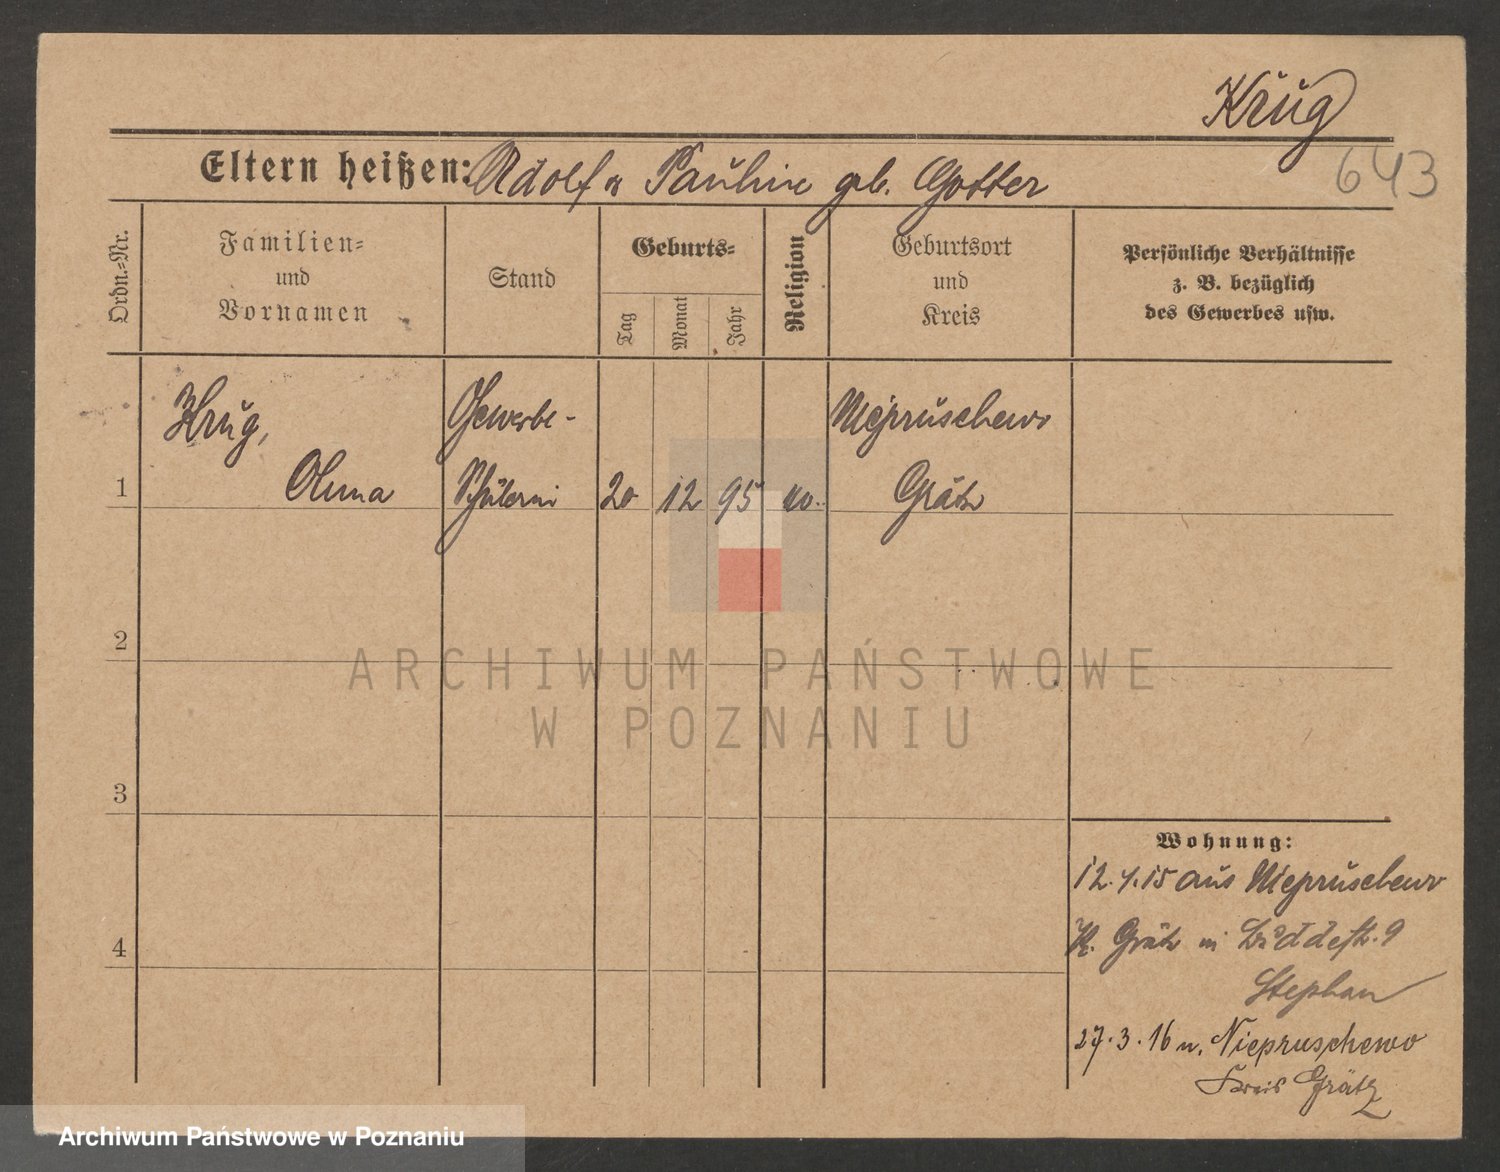 Krug
643
Eltern heißen: Adolf u Pauline geb. Gotter
Ordn.-Nr.
Familien-
und
Vornamen
Stand
Geburts-
Tag
Monat
Jahr
Religion
Geburtsort
und
Kreis
Persönliche Verhältnisse
z. B. bezüglich
des Gewerbes usw.
Krug,
Gewerbe-
Niepruschewo
1
Schülerin
20
12
95
Grätz
2
ARCHIWUM PAŃSTWOWE
W POZNANIU
3
4
Wohnung:
12.4.15 aus Niepruschewo
K. Grätz in 9
Stephan
27.3.16 n. Niepruschewo
Kreis Grätz
Archiwum Państwowe w Poznaniu